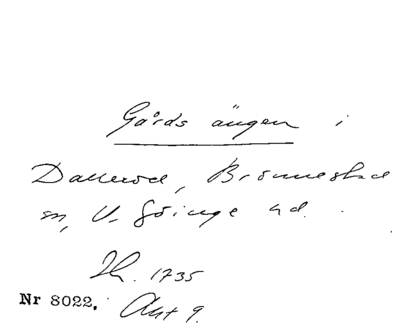 Gårds ängen i
Dallerød, Brönnestad
sn, V. Göinge hd.
Sk. 1735
Nr 8022. Akt 9.